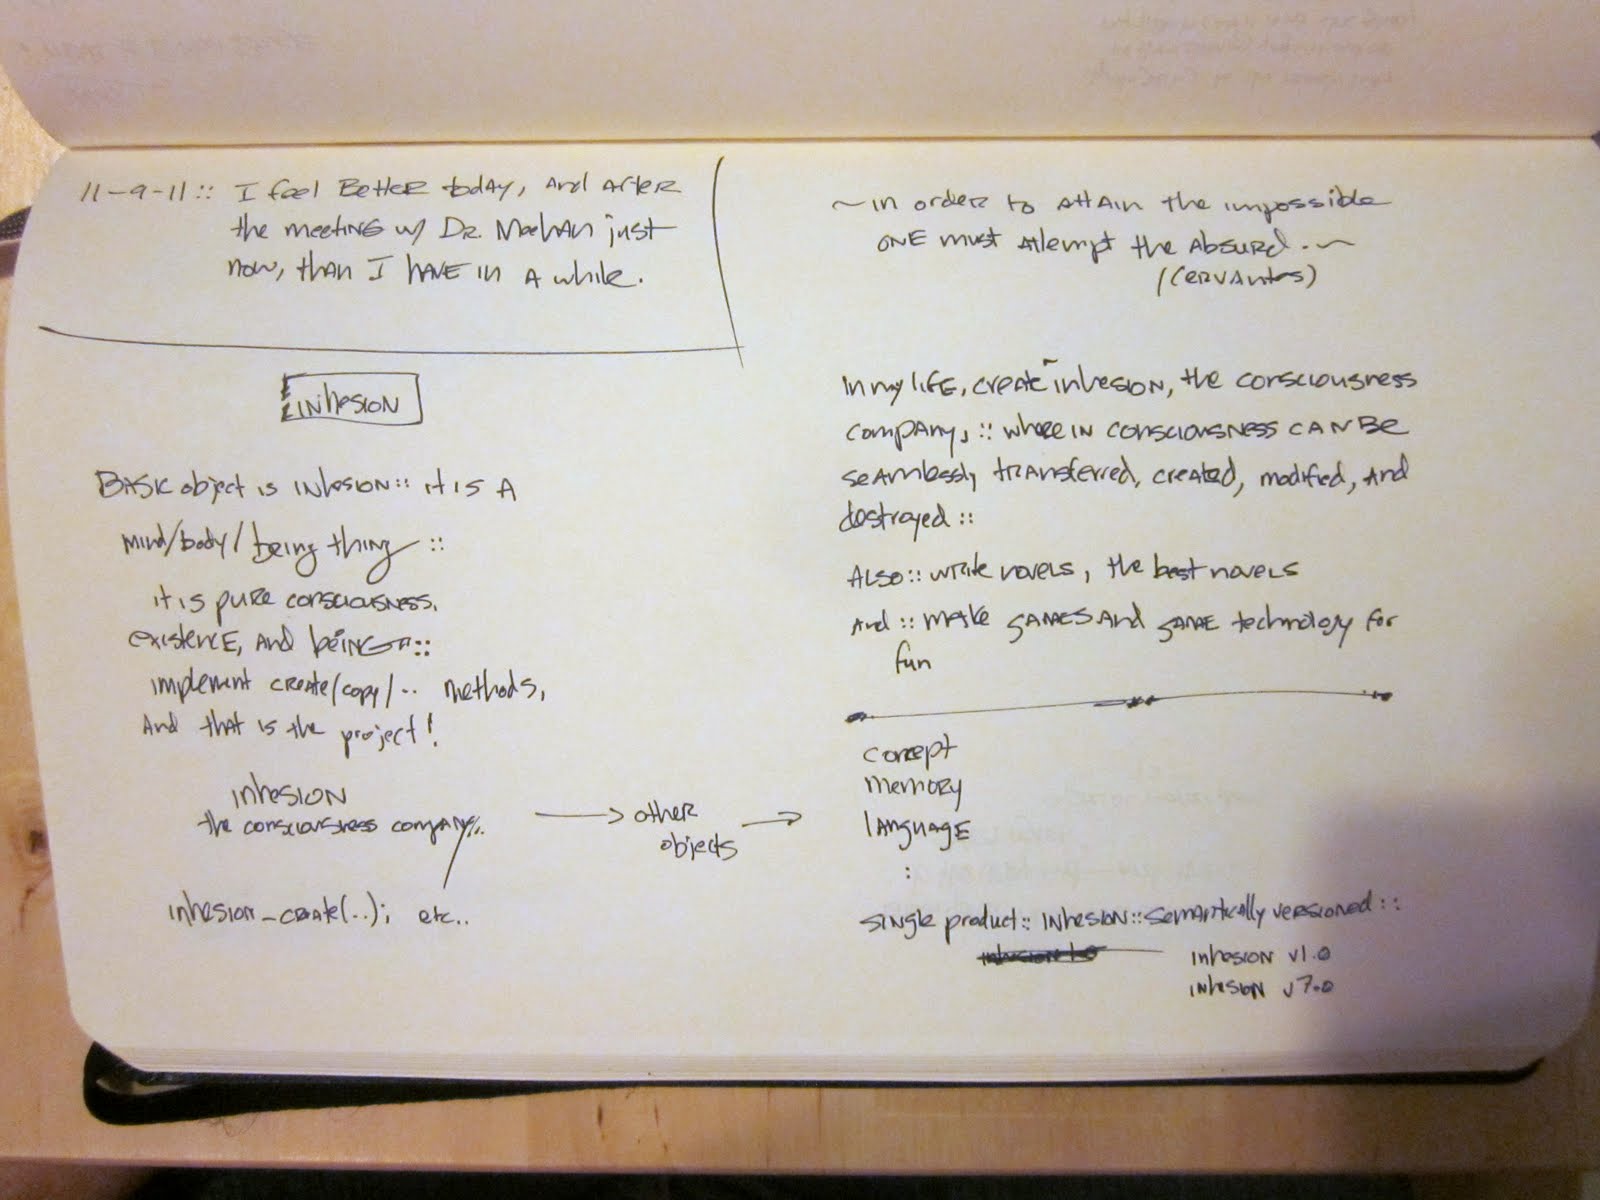 11-9-11:: I feel Better today, And After
the meeting w/ Dr. Meehan just
now, than I HAVE in A while.
INhesION
BASIC object is INhesION:: it is A
mind/body/being thing ::
it is pure consciousness,
existence, And being ::
implement create/copy/.. methods,
And that is the project!
INhesION
the consciousness company..
inhesion_create(..); etc..
other
objects
~ in order to AttAin the impossible
ONE must Attempt the Absurd. ~
(CERVANtes)
In my LIFE, create inhesion, the consciousness
company, :: where IN consciousness CAN BE
seamlessly transferred, created, modified, And
destroyed ::
ALSO:: write novels, the best novels
And :: make GAMES And GAME technology for
fun
concept
memory
language
:
single product:: INhesION:: semantically versioned ::
INhesION v1.0
INhesION v7.0